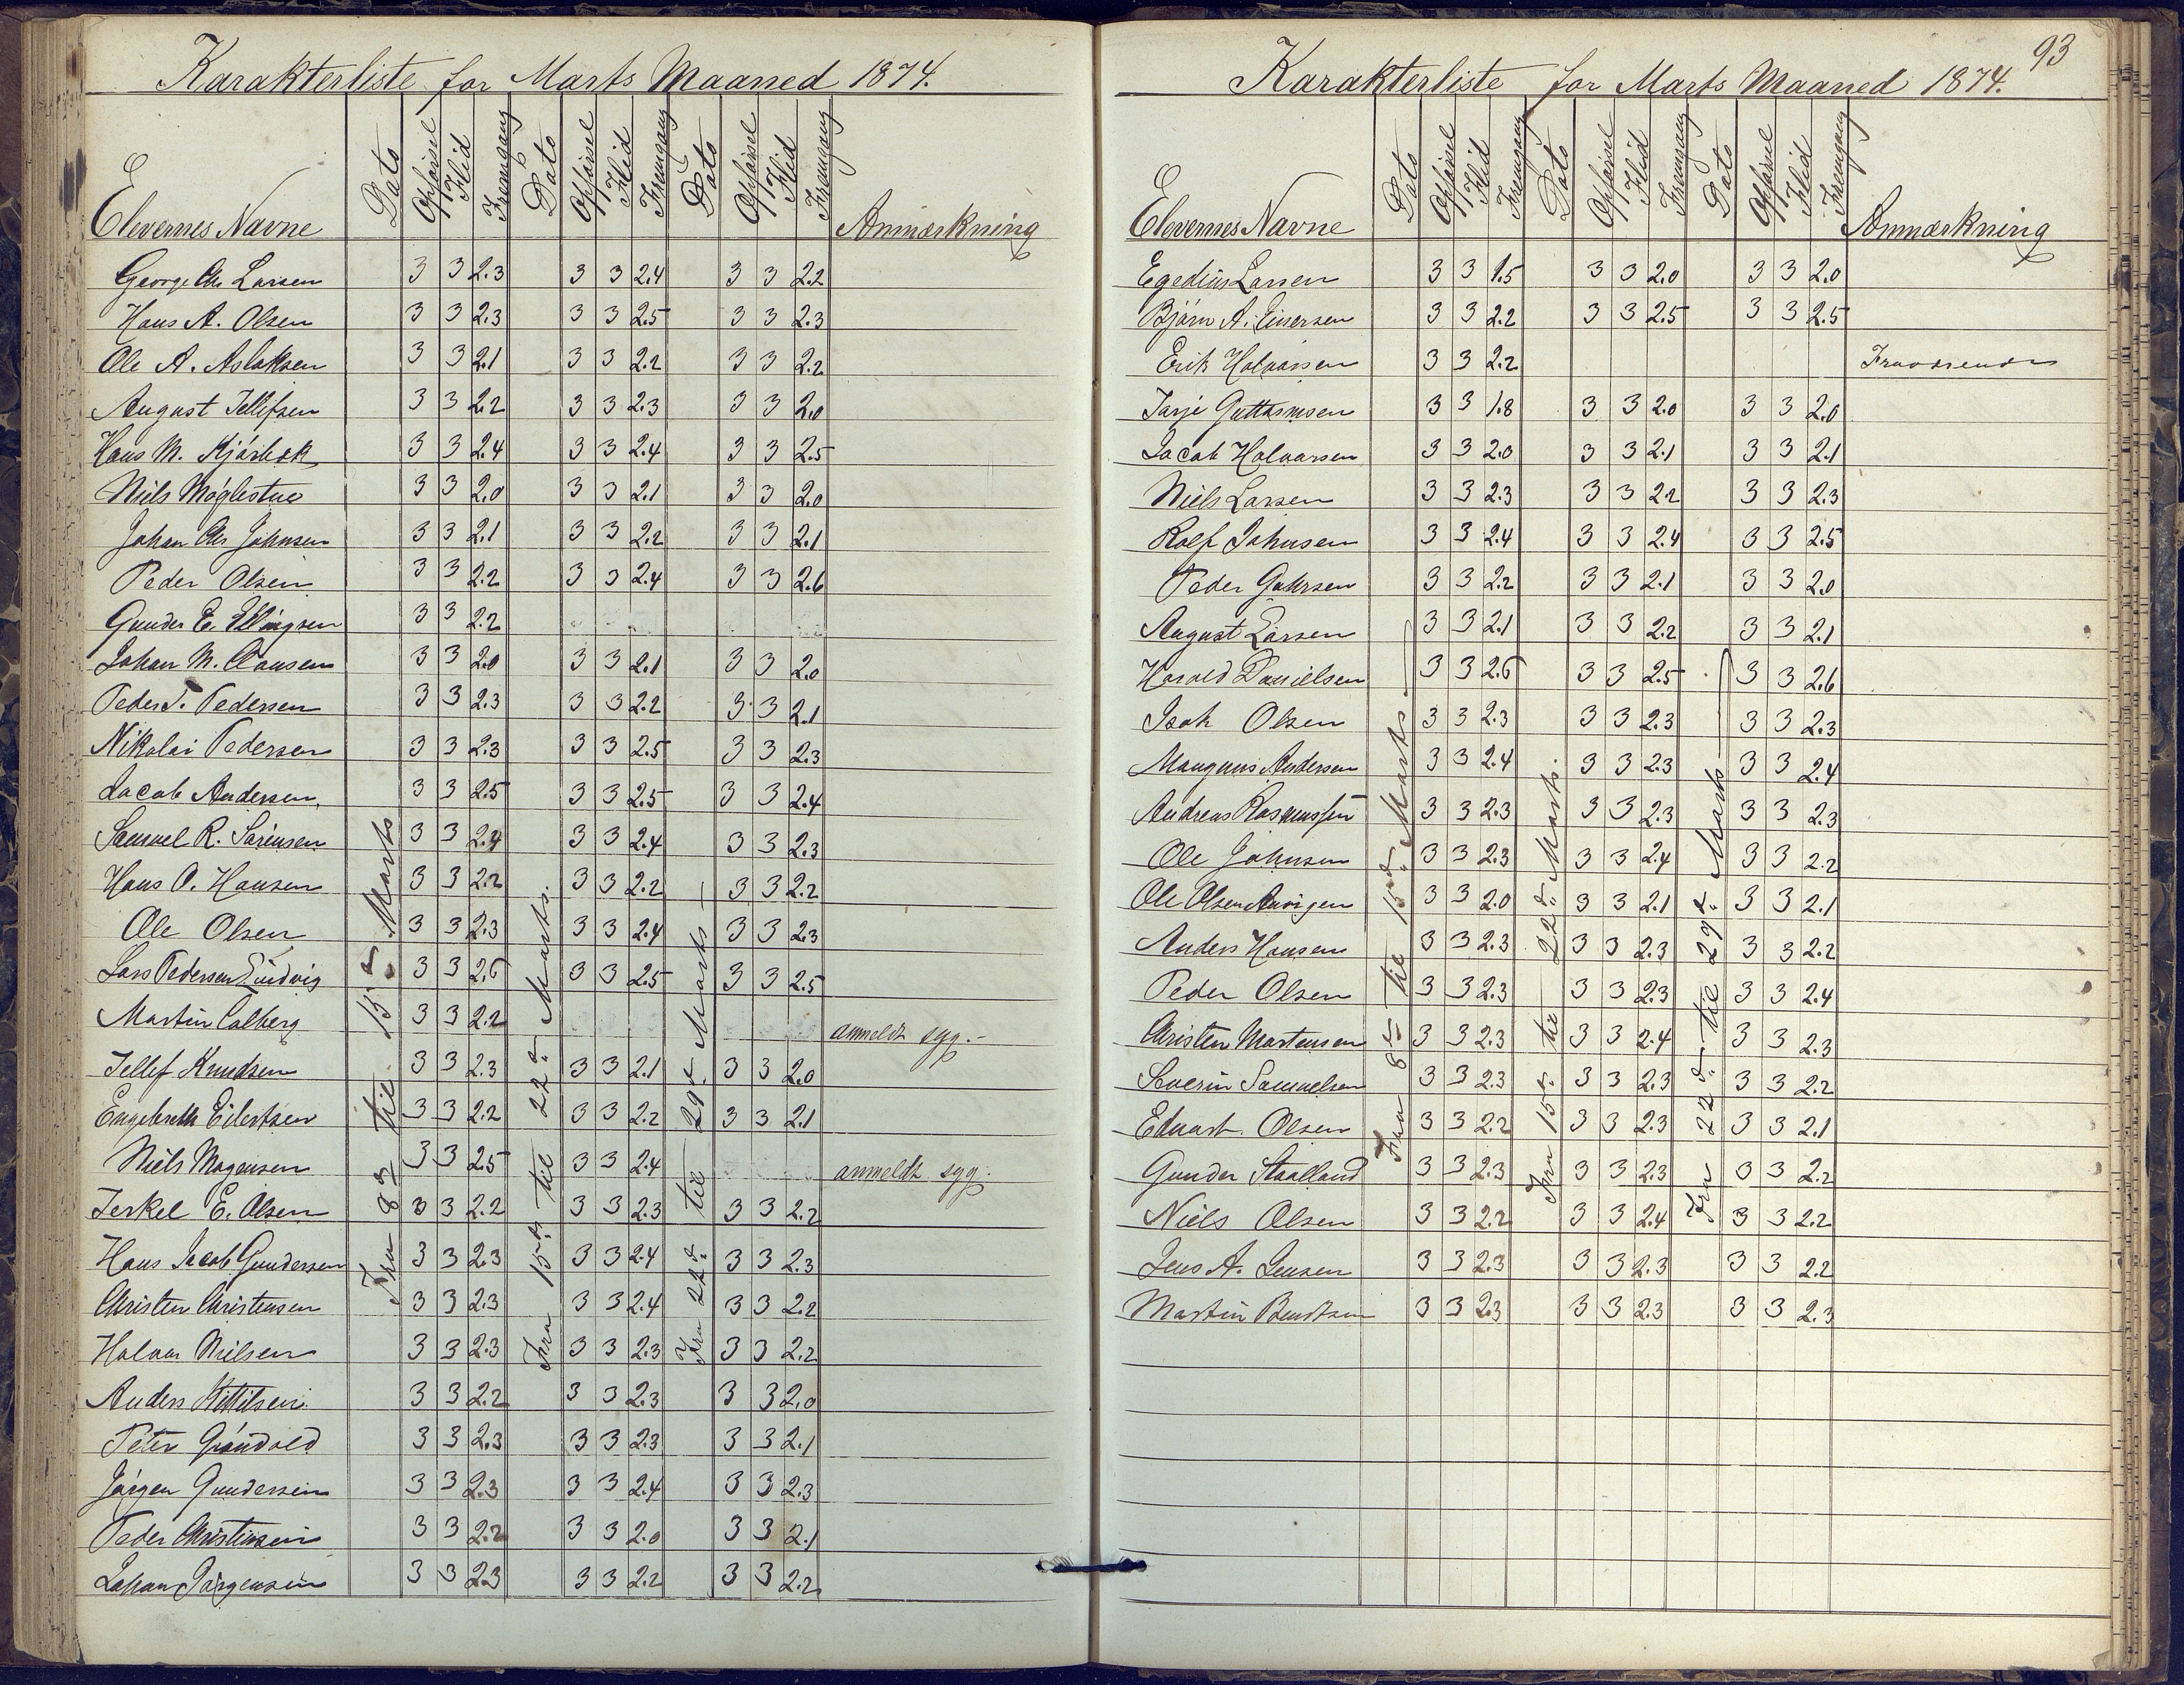 Karakterliste for Marts Maaned 1874.
Elevernes Navne Dato Opførsel Flid Fremgang Dato Opførsel Flid Fremgang Dato Opførsel Flid Fremgang Anmærkning
Fra 8de til 15de Marts
Fra 15de til 22de Marts.
Fra 22de til 29de Marts
George Chr Larsen 3 3 2.3 3 3 2.4 3 3 2.2
Hans A. Olsen 3 3 2.3 3 3 2.5 3 3 2.3
Ole A. Aslaksen 3 3 2.1 3 3 2.2 3 3 2.2
August Tellefsen 3 3 2.2 3 3 2.3 3 3 2.0
Hans M. Kjørbek 3 3 2.4 3 3 2.4 3 3 2.5
Niels Møglestue 3 3 2.0 3 3 2.1 3 3 2.0
Johan Chr Johnsen 3 3 2.1 3 3 2.2 3 3 2.1
Peder Olsen 3 3 2.2 3 3 2.4 3 3 2.6
Gunder E. Ellingsen 3 3 2.2
Johan M. Clausen 3 3 2.0 3 3 2.1 3 3 2.0
Peder T. Pedersen 3 3 2.3 3 3 2.2 3 3 2.1
Nikolai Pedersen 3 3 2.3 3 3 2.5 3 3 2.3
Jacob Andersen. 3 3 2.5 3 3 2.5 3 3 2.4
Samuel R. Sørensen 3 3 2.4 3 3 2.4 3 3 2.3
Hans O. Hansen 3 3 2.2 3 3 2.2 3 3 2.2
Ole Olsen 3 3 2.3 3 3 2.4 3 3 2.3
Lars Pedersen Lindvig 3 3 2.6 3 3 2.5 3 3 2.5
Martin Calberg 3 3 2.2 anmeldt syg.
Tellef Knudsen 3 3 2.3 3 3 2.1 3 3 2.0
Engebreth Eilertsen 3 3 2.2 3 3 2.2 3 3 2.1
Niels Mogensen 3 3 2.5 3 3 2.4 anmeldt syg.
Terkel E. Olsen 3 3 2.2 3 3 2.3 3 3 2.2
Hans Jacob Gundersen 3 3 2.3 3 3 2.4 3 3 2.3
Christen Christensen 3 3 2.3 3 3 2.4 3 3 2.2
Halvor Nielsen 3 3 2.3 3 3 2.3 3 3 2.2
Anders Kittilsen 3 3 2.2 3 3 2.3 3 3 2.0
Peter Grøndold 3 3 2.3 3 3 2.3 3 3 2.1
Jørgen Gundersen 3 3 2.3 3 3 2.4 3 3 2.3
Peder Christensen 3 3 2.2 3 3 2.0 3 3 2.1
Johan Jørgensen 3 3 2.3 3 3 2.2 3 3 2.2
93
Karakterliste for Marts Maaned 1874.
Elevernes Navne Dato Opførsel Flid Fremgang Dato Opførsel Flid Fremgang Dato Opførsel Flid Fremgang Anmærkning
Fra 8de til 15de Marts
Fra 15de til 22de Marts.
Fra 22de til 29de Marts
Egedius Larsen 3 3 1.5 3 3 2.0 3 3 2.0
Bjørn A. Einersen 3 3 2.2 3 3 2.5 3 3 2.5
Erik Halvorsen 3 3 2.2 Fraværende
Tarje Guttormsen 3 3 1.8 3 3 2.0 3 3 2.0
Jacob Halvorsen 3 3 2.0 3 3 2.1 3 3 2.1
Niels Larsen 3 3 2.3 3 3 2.2 3 3 2.3
Rolf Johnsen 3 3 2.4 3 3 2.4 3 3 2.5
Peder Gahrsen 3 3 2.2 3 3 2.1 3 3 2.0
August Larsen 3 3 2.1 3 3 2.2 3 3 2.1
Harald Danielsen 3 3 2.6 3 3 2.5 3 3 2.6
Isak Olsen 3 3 2.3 3 3 2.3 3 3 2.3
Mangnus Andersen 3 3 2.4 3 3 2.3 3 3 2.4
Andreas Rasmussen 3 3 2.3 3 3 2.3 3 3 2.3
Ole Johnsen 3 3 2.3 3 3 2.4 3 3 2.2
Ole Olsen 3 3 2.0 3 3 2.1 3 3 2.1
Anders Hansen 3 3 2.3 3 3 2.3 3 3 2.2
Peder Olsen 3 3 2.3 3 3 2.3 3 3 2.4
Christen Mortensen 3 3 2.3 3 3 2.4 3 3 2.3
Severin Samuelsen 3 3 2.3 3 3 2.3 3 3 2.2
Eduart Olsen 3 3 2.2 3 3 2.3 3 3 2.1
Gunder Staalland 3 3 2.3 3 3 2.3 3 3 2.2
Niels Olsen 3 3 2.2 3 3 2.4 3 3 2.2
Jens A. Jensen 3 3 2.3 3 3 2.3 3 3 2.2
Martin Bendtsen 3 3 2.3 3 3 2.3 3 3 2.3